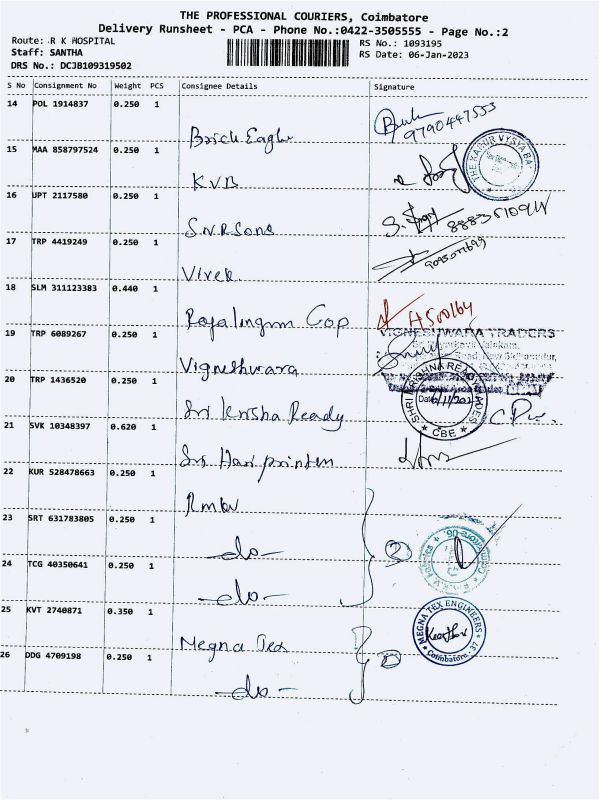 THE PROFESSIONAL COURIERS, Coimbatore
Delivery Runsheet - PCA - Phone No.:0422-3505555 - Page No.:2
Route: R K HOSPITAL
RS No.: 1093195
Staff: SANTHA
RS Date: 06-Jan-2023
DRS No.: DCJB109319502
S No Consignment No Weight PCS Consignee Details Signature
14 POL 1914837 0.250 1
Brick Eagle
9790447553
15 MAA 858797524 0.250 1
KVB
THE KARUR VYSYA BA
16 UPT 2117580 0.250 1
S.N.R Sons
17 TRP 4419249 0.250 1
Vivek.
18 SLM 311123383 0.440 1
Rajalingam Cop
19 TRP 6089267 0.250 1
VIGNESHWARA TRADERS
Vigneshwara
20 TRP 1436520 0.250 1
SHRI KRISHNA READYMADES
CBE
Sri krisha Ready
21 SVK 10348397 0.620 1
Sri Hari printers
22 KUR 528478663 0.250 1
Rmkv
23 SRT 631783805 0.250 1
-do-
2
24 TCG 40350641 0.250 1
-do-
25 KVT 2740871 0.350 1
Megna Tex
MEGNA TEX ENGINEERS
Coimbatore. 37
26 DDG 4709198 0.250 1
-do-